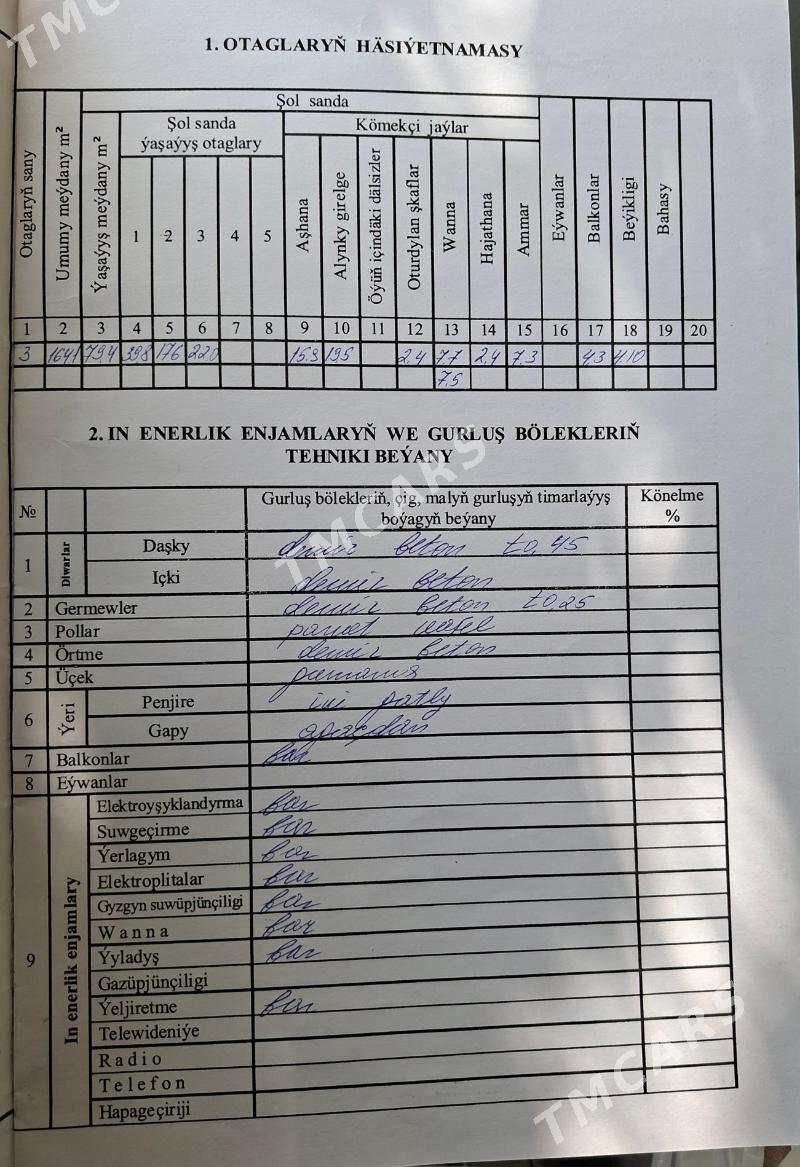 1. OTAGLARYŇ HÄSIÝETNAMASY
Otaglaryň sany
Umumy meýdany m²
Şol sanda
Ýaşaýyş meýdany m²
Şol sanda
ýaşaýyş otaglary
1 2 3 4 5
Kömekçi jaýlar
Aşhana
Alynky girelge
Öýüň içindäki dälsizler
Oturdylan şkaflar
Wanna
Hajathana
Ammar
Eýwanlar
Balkonlar
Beýikligi
Bahasy
1 2 3 4 5 6 7 8 9 10 11 12 13 14 15 16 17 18 19 20
3 164,1 79,4 39,8 17,6 22,0 15,9 19,5 2,4 7,7 2,4 7,3 4,3 4,10
7,5
2. IN ENERLIK ENJAMLARYŇ WE GURLUŞ BÖLEKLERIŇ
TEHNIKI BEÝANY
№ Gurluş bölekleriň, çig, malyň gurluşyň timarlaýyş
boýagyň beýany
Könelme
%
1 Diwarlar Daşky demir beton t0,45
Içki demir beton
2 Germewler demir beton t0,25
3 Pollar parket kafel
4 Örtme demir beton
5 Üçek
6 Ýeri Penjire iki gatly
Gapy agaçdan
7 Balkonlar bar
8 Eýwanlar
9 In enerlik enjamlary
Elektroyşyklandyrma bar
Suwgeçirme bar
Ýerlagym bar
Elektroplitalar bar
Gyzgyn suwüpjünçiligi bar
Wanna bar
Ýyladyş bar
Gazüpjünçiligi
Ýeljiretme bar
Telewideniýe
Radio
Telefon
Hapageçiriji
TMCARS
TMCARS
TMCARS